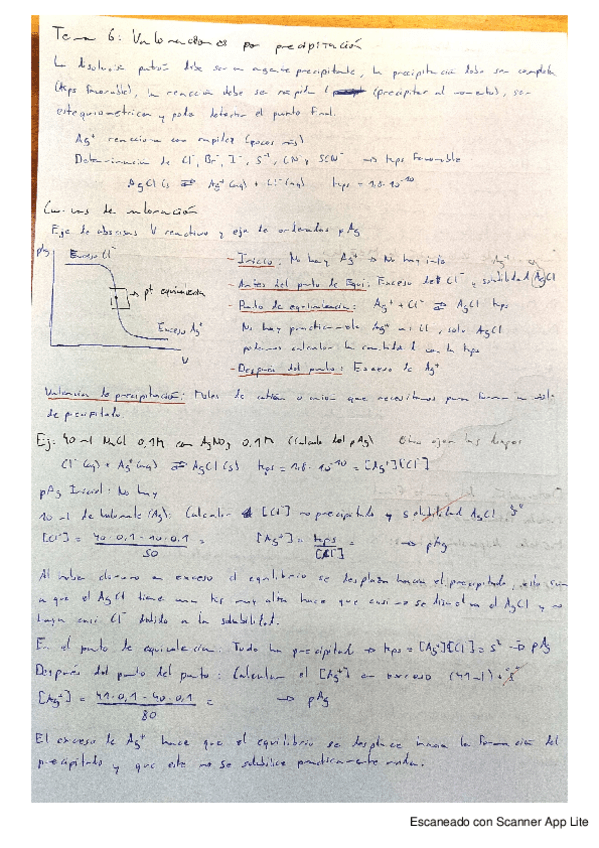 Tema 6: Valoraciones por precipitación
La disolución patrón debe ser un agente precipitante, la precipitación debe ser completa
(Kps favorable), la reacción debe ser rápida (precipitar al momento), ser
estequiométrica y poder detectar el punto final.
Ag⁺ reacciona con rapidez (pocos ms)
Determinación de Cl⁻, Br⁻, I⁻, S⁻², CN⁻ y SCN⁻ → Kps favorable
AgCl(s) ⇌ Ag⁺(aq) + Cl⁻(aq) Kps = 1.8·10⁻¹⁰
Curvas de valoración
Eje de abscisas V reactivo y eje de ordenadas pAg
pAg
Exceso Cl⁻
pt equivalencia
Exceso Ag⁺
V
- Inicio: No hay Ag⁺ → No hay info
- Antes del punto de Equi: Exceso de Cl⁻ y solubilidad AgCl
- Punto de equivalencia: Ag⁺ + Cl⁻ ⇌ AgCl Kps
No hay prácticamente Ag⁺ ni Cl⁻, solo AgCl
podemos calcular la cantidad con la Kps
- Después del punto: Exceso de Ag⁺
Valoración de precipitación: Moles de catión o anión que necesitamos para formar un mol
de precipitado.
Ej: 40 ml NaCl 0,1M con AgNO₃ 0,1M (Calculo del pAg)
Cl⁻(aq) + Ag⁺(aq) ⇌ AgCl(s) Kps = 1.8·10⁻¹⁰ = [Ag⁺][Cl⁻]
pAg Inicial: No hay
10 ml de (Ag): Calcular [Cl⁻] no precipitado y solubilidad AgCl
[Cl⁻] = 40·0,1 - 10·0,1 / 50 = [Ag⁺] = Kps / [Cl⁻] → pAg
Al haber cloruro en exceso el equilibrio se desplaza hacia el precipitado, esto
a que el AgCl tiene una Kps muy alta hace que casi no se disuelva el AgCl y no
haya casi Cl⁻ debido a la solubilidad.
En el punto de equivalencia: Todo ha precipitado → Kps = [Ag⁺][Cl⁻] = s² → pAg
Después del punto del punto: Calcular el [Ag⁺] en exceso (41ml)
[Ag⁺] = 41·0,1 - 40·0,1 / 80 = → pAg
El exceso de Ag⁺ hace que el equilibrio se desplace hacia la formación del
precipitado y que este no se solubilice prácticamente nada.
Escaneado con Scanner App Lite